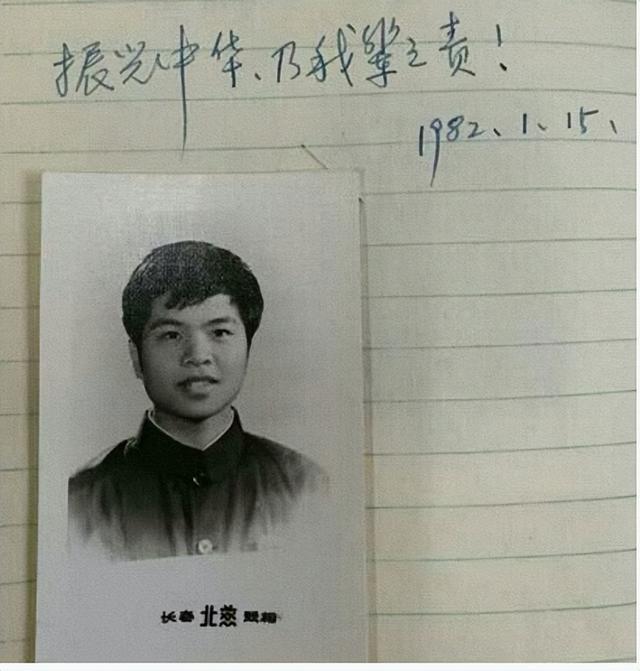 振兴中华、乃我辈之责!
1982、1、15、
长春 北慈 照相